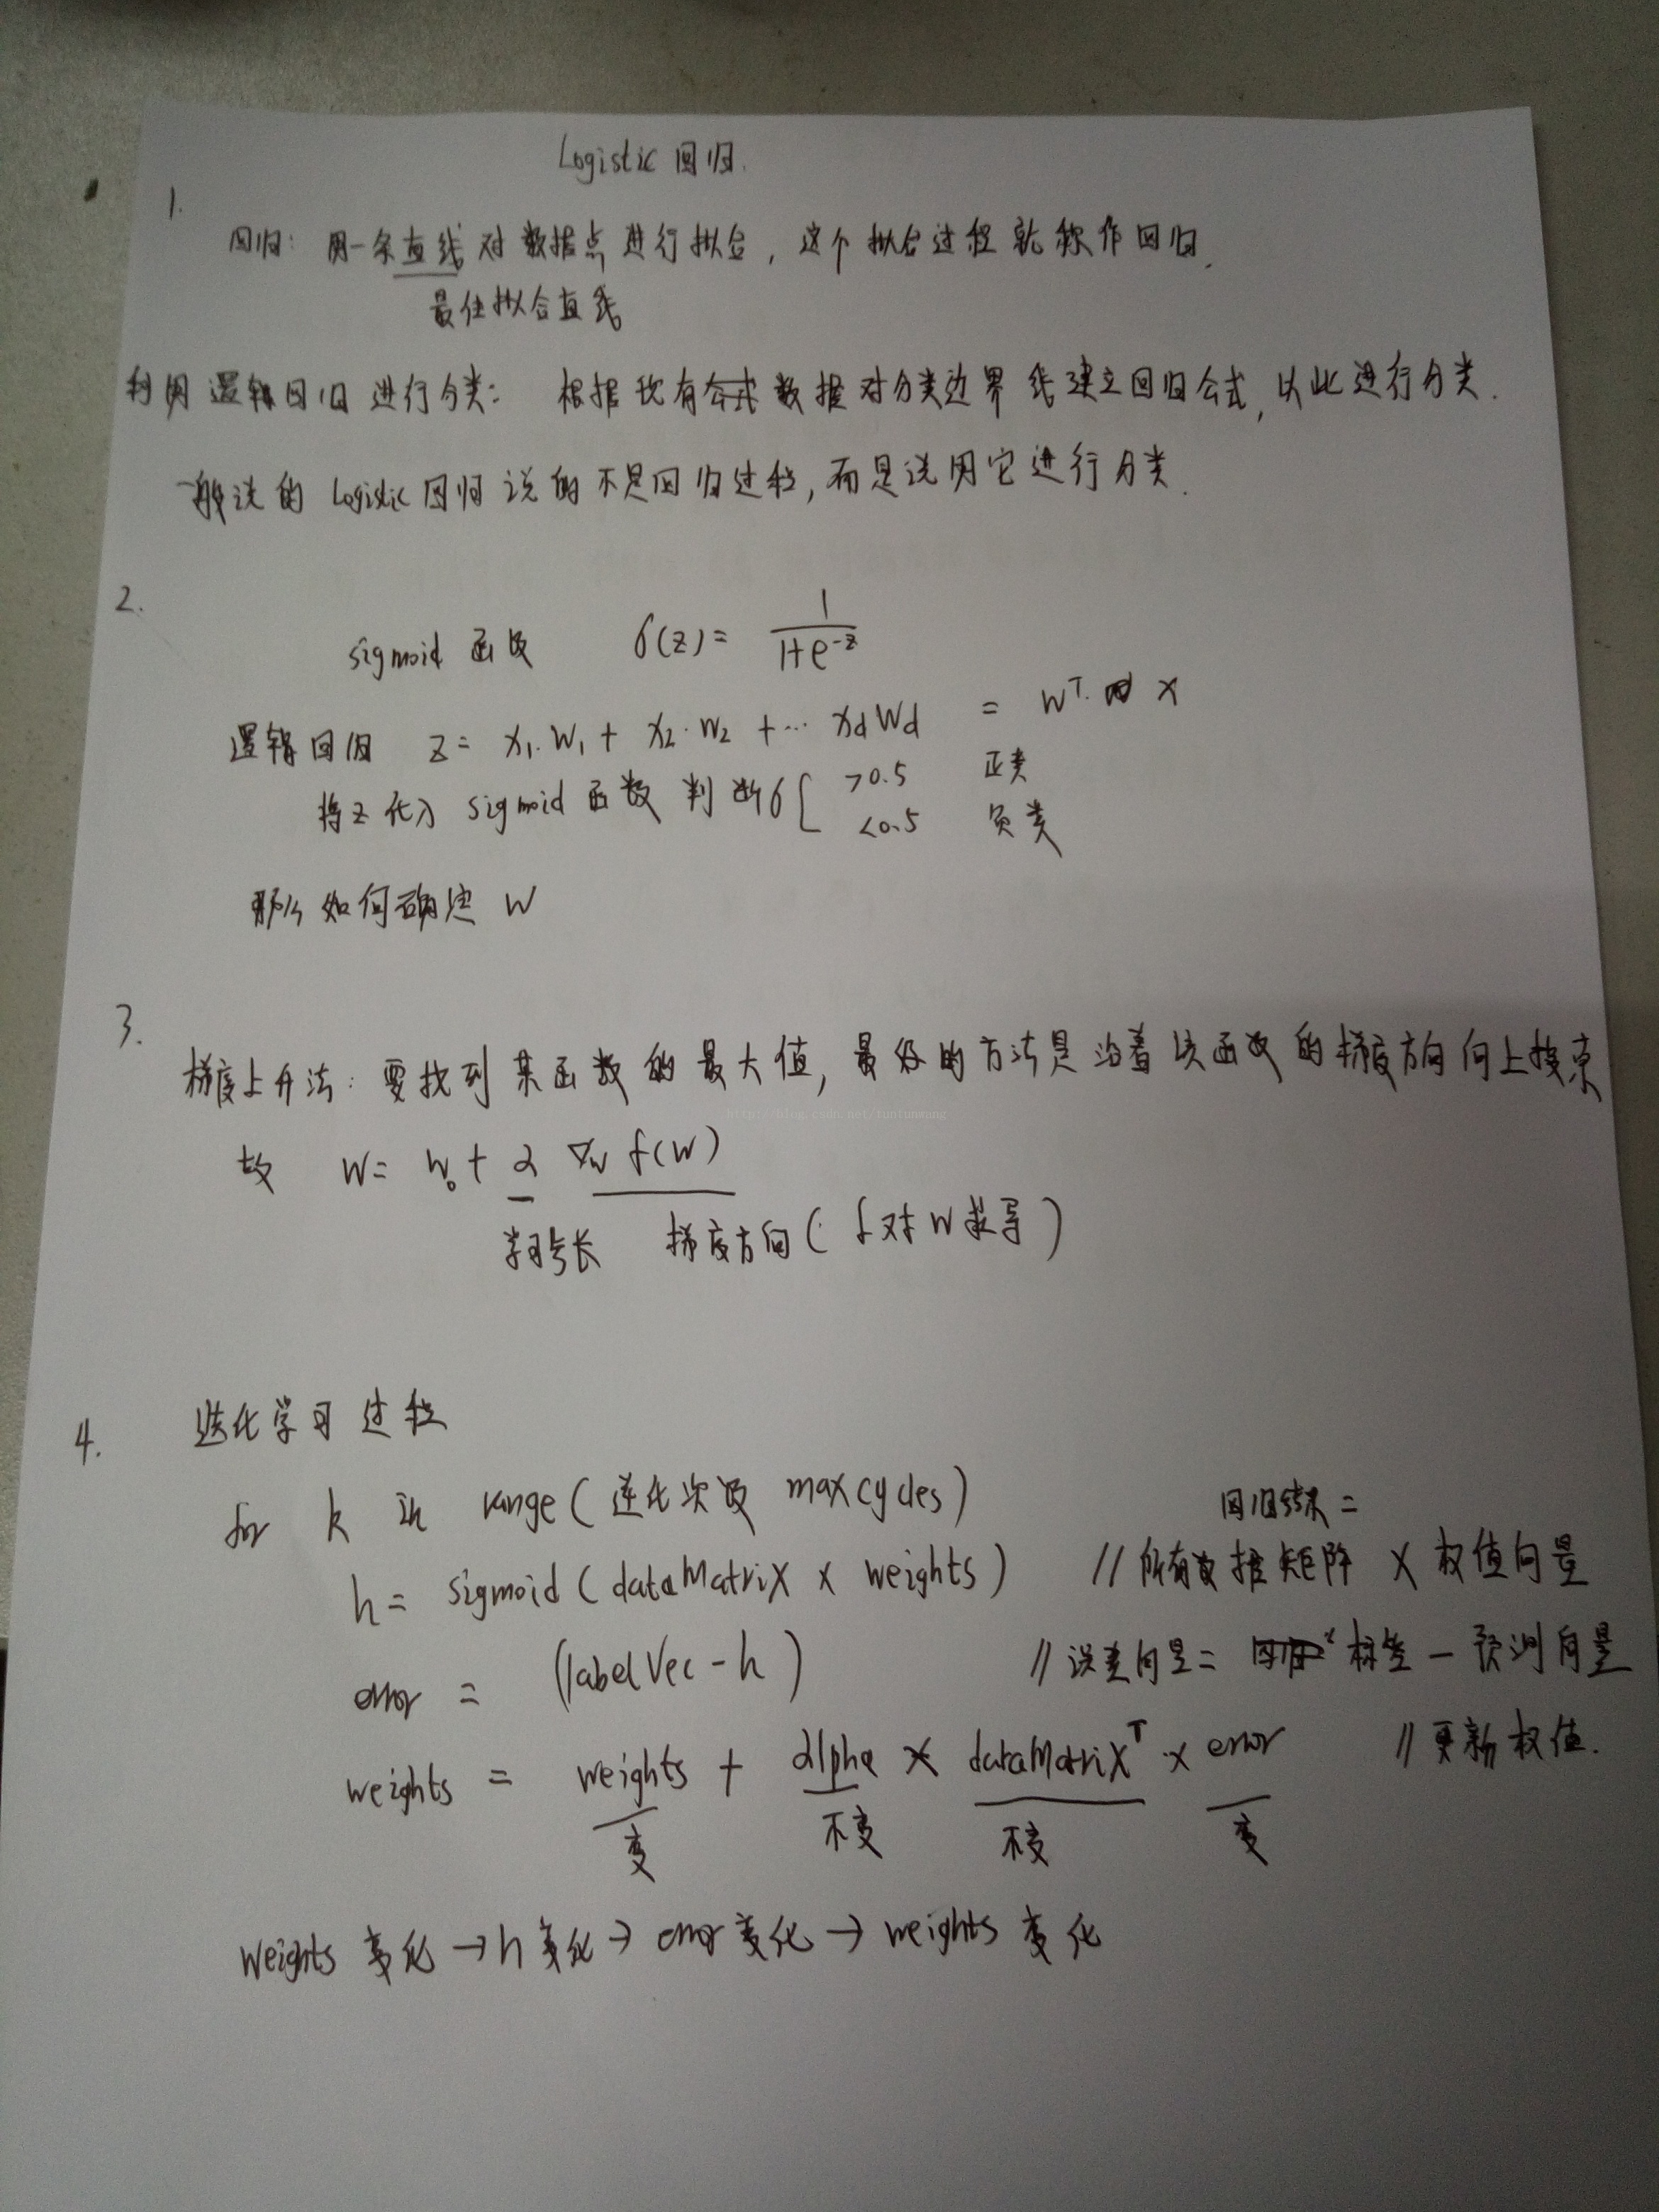 Logistic 回归.
1.
回归: 用一条直线对数据点进行拟合, 这个拟合过程就称作回归.
最佳拟合直线
利用逻辑回归进行分类: 根据现有公式数据对分类边界线建立回归公式, 以此进行分类.
一般说的 Logistic 回归说的不是回归过程, 而是说用它进行分类.
2.
sigmoid 函数 σ(z) = 1 / (1+e^-z)
逻辑回归 z = x1·w1 + x2·w2 + … xd wd = w^T· x
将z代入 sigmoid 函数 判断σ [ >0.5 正类
<0.5 负类
那么如何确定 w
3.
梯度上升法: 要找到某函数的最大值, 最好的方法是沿着该函数的梯度方向向上搜索
http://blog.csdn.net/tuntunwang
故 w = w0 + α ∇w f(w)
学习步长 梯度方向 ( f 对 w 求导 )
4. 迭代学习过程
for k in range ( 迭代次数 maxcycles )
回归结果 =
h = sigmoid ( dataMatrix × weights ) // 所有数据矩阵 × 权值向量
error = (labelVec - h ) // 误差向量 = 标签 - 预测向量
weights = weights + alpha × dataMatrix^T × error // 更新权值.
变 不变 不变 变
weights 变化 → h 变化 → error 变化 → weights 变化